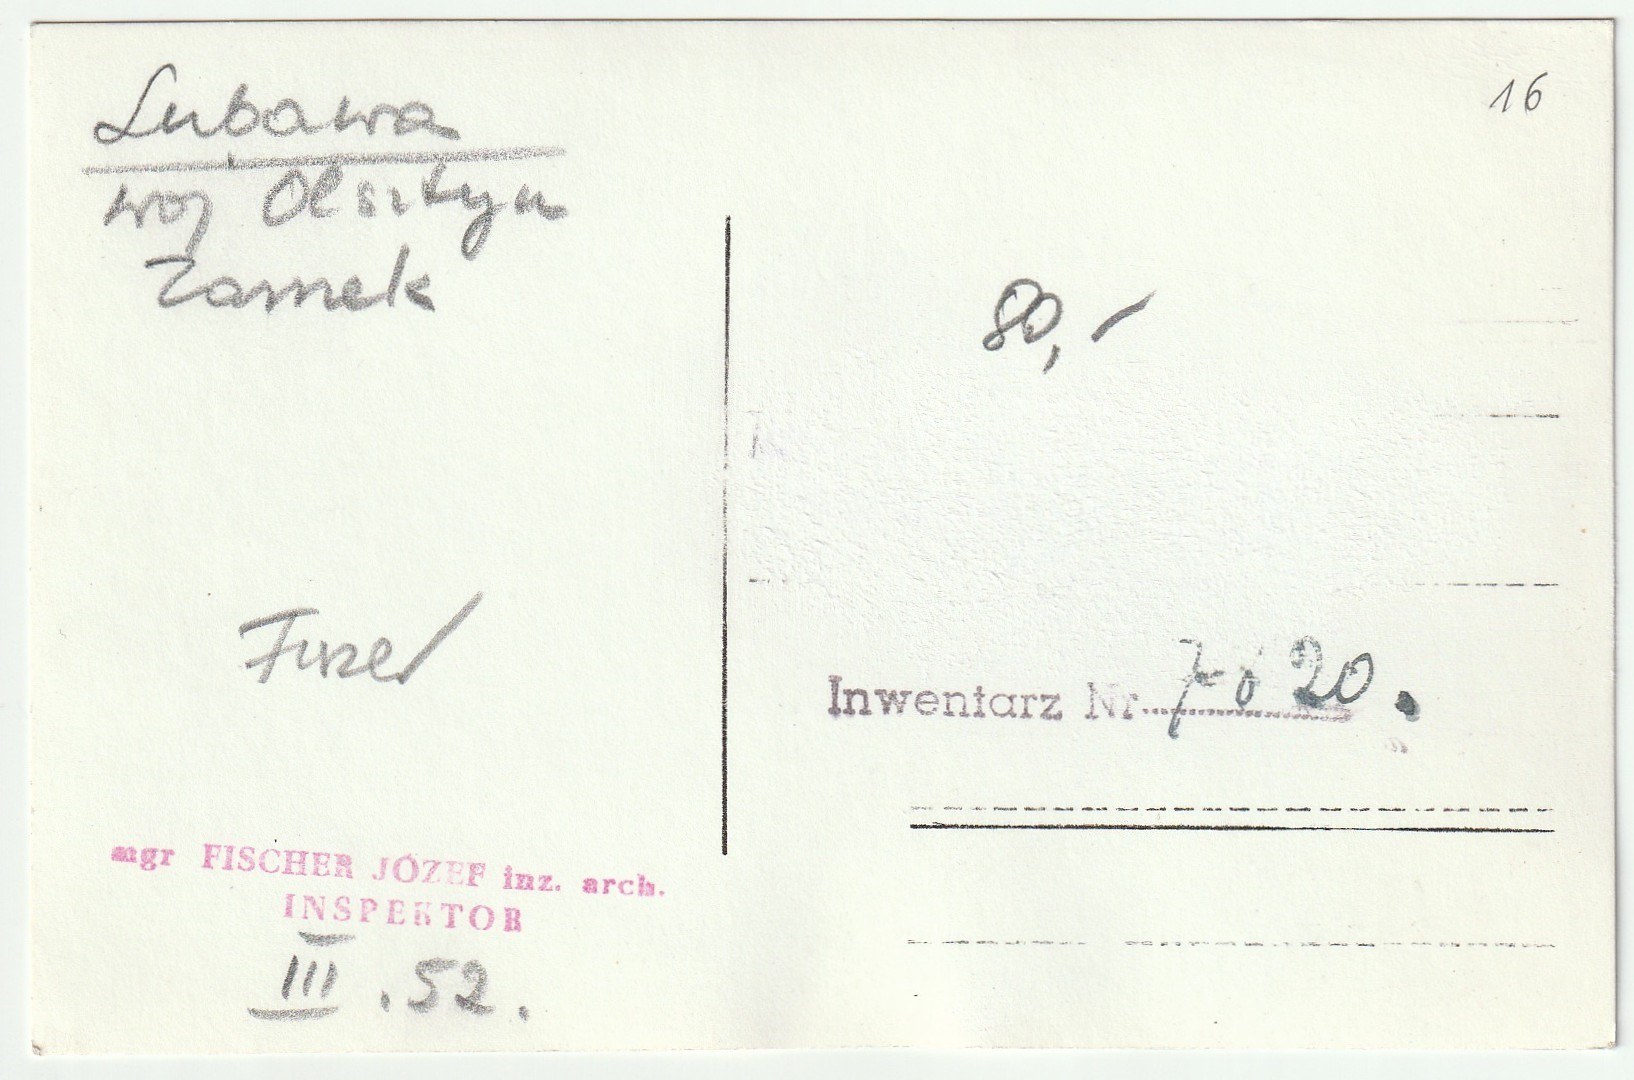 Lubawa
woj Olsztyn
Zamek
mgr FISCHER JÓZEF inz. arch.
INSPEKTOR
III.52.
16
80,-
Inwentarz Nr 7020.